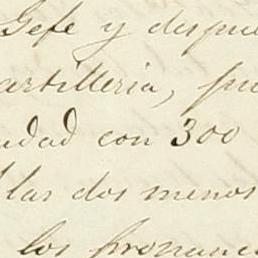 Gefe y despue
artilleria, pu
udad con 300
las dos menos
los pronunc